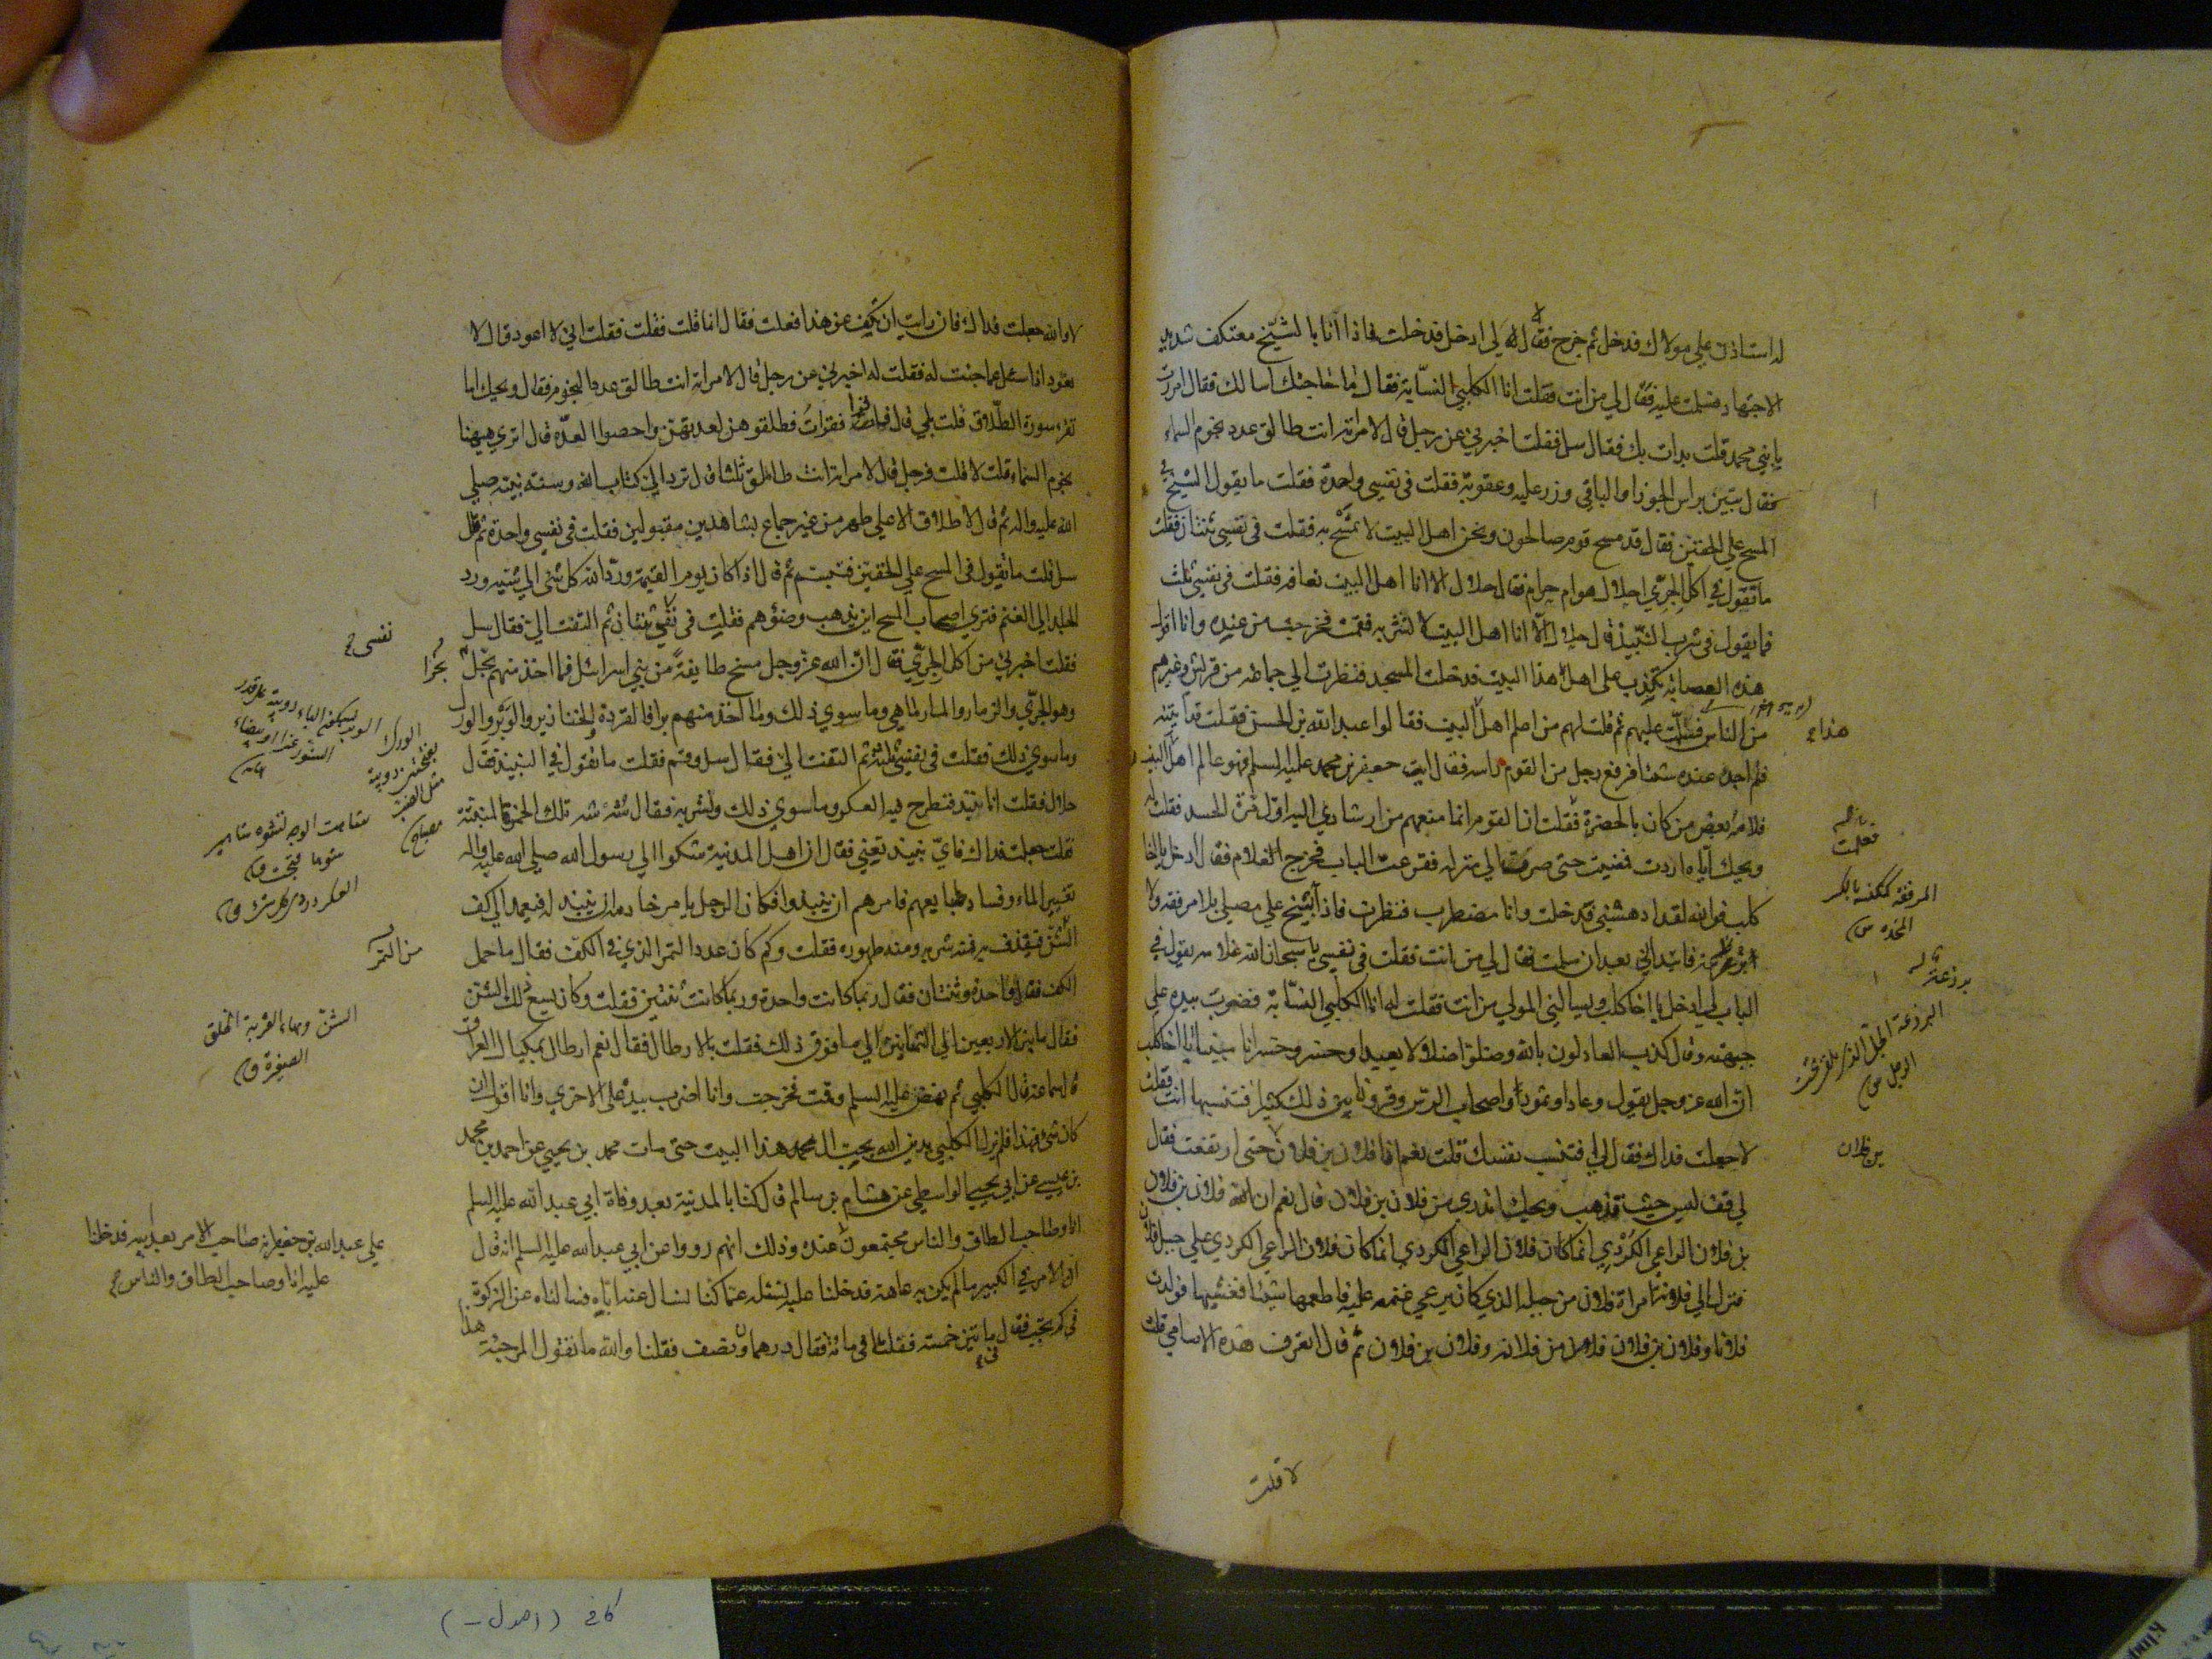 له استاذن علي مولاك فدخل ثم خرج فقال لي ادخل فدخلت فاذا انا بالشيخ معتكف شديد
الاجتهاد فسلمت عليه فقال لي من انت فقلت انا الكلبي النسابة فقال ما حاجتك فقلت جئت اسالك فقال امررت
يابني محمد قلت بدات بك فقال سل فقلت اخبرني عن رجل قال لامراته انت طالق عدد نجوم السماء
فقال تبين براس الجوزا والباقي وزر عليه وعقوبة فقلت في نفسي واحدة فقلت ما يقول الشيخ في
المسح علي الخفين فقال قد مسح قوم صالحون ونحن اهل البيت لا نمسح به فقلت في نفسي ثنتان فقلت
ما تقول في اكل الجري احلال هو ام حرام فقال حلال الا انا اهل البيت نعافه فقلت في نفسي ثلث
فما يقول في شرب النبيذ قال حلال الا انا اهل البيت لا نشربه فقمت فخرجت من عنده وانا اقول
هذه العصابة تكذب علي اهل هذا البيت فدخلت المسجد فنظرت الي جماعة من قريش وغيرهم
من الناس فسلمت عليهم ثم قلت لهم من اعلم اهل البيت فقالوا عبد الله بن الحسن فقلت قد اتيته
فلم اجد عنده شيئا فرفع رجل من القوم راسه فقال ايت جعفر بن محمد عليه السلم فهو عالم اهل البيت
فلامه بعض من كان بالحضرة فقلت ان القوم انما منعهم من ارشادي اليه اول مرة الحسد فقلت له
ويحك اياه اردت فمضيت حتي صرت الي منزله فقرعت الباب فخرج الغلام فقال ادخل يا اخا
كلب فوالله لقد ادهشني فدخلت وانا مضطرب فنظرت فاذا شيخ علي مصلي بلا مرفقة ولا
بردعة فابتداني بعد ان سلمت فقال لي من انت فقلت في نفسي يا سبحان الله غلامه يقول لي
الباب ادخل يا اخا كلب ويسالني المولي من انت فقلت له انا الكلبي النسابة فضرب بيده علي
جبهته وقال كذب العادلون بالله وضلوا ضلالا بعيدا وخسروا خسرانا مبينا يا اخا كلب
ان الله عز وجل يقول وعادا وثمودا واصحاب الرس وقرونا بين ذلك كثيرا فتنسبها انت فقلت
لا جعلت فداك فقال لي افتنسب نفسك قلت نعم انا فلان بن فلان حتي ارتفعت فقال
لي قف ليس حيث تذهب ويحك اتدري من فلان بن فلان قال نعم ان فلان بن فلان
بن فلان الراعي الكردي انما كان فلان الراعي الكردي علي جبل فلان
فنزل الي فلانة امراة فلان من جبله الذي كان يرعي غنمه عليه فاطعمها شيئا فغشيها فولدت
فلانا وفلان بن فلان من فلانة وفلان بن فلان ثم قال اتعرف هذه الاسامي قلت
هذا
فعلمت
المرفقة كمكنسة بالكسر
المخده
بردعة
بن فلان
لا قلت
لا والله جعلت فداك فان رايت ان تكف عن هذا فعلت فقال انما قلت فقلت فقلت اني لا اعود قال لا
نعود اذا سئل عما جئت له فقلت له اخبرني عن رجل قال لامراته انت طالق عدد النجوم فقال ويحك اما
تقرء سورة الطلاق قلت بلي قال فاقرا فقرات فطلقوهن لعدتهن واحصوا العدة قال اتري هيهنا
نجوم السماء قلت لا قلت فرجل قال لامراته انت طالق ثلثا قال ترد الي كتاب الله وسنة نبيه صلي
الله عليه واله ثم قال لا طلاق الا علي طهر من غير جماع بشاهدين مقبولين فقلت في نفسي واحدة ثم قال
سل قلت ما تقول في المسح علي الخفين فتبسم ثم قال اذا كان يوم القيمة ورد الله كل شئ الي شيئه ورد
الجلد الي الغنم فتري اصحاب المسح اين يذهب وضوءهم فقلت في نفسي ثنتان ثم التفت الي فقال سل
فقلت اخبرني عن اكل الجري فقال ان الله عز وجل مسخ طايفة من بني اسرائيل فما اخذ منهم بحرا
وهو الجري والزمار والمارماهي وما سوي ذلك وما اخذ منهم برا فالقردة والخنازير والوبر والورل
وما سوي ذلك فقلت في نفسي ثلث ثم التفت الي فقال سل وقم فقلت ما تقول في النبيذ فقال
حلال فقلت انا ننبذ فنطرح فيه العكر وما سوي ذلك ونشربه فقال شه شه تلك الخمرة المنتنة
فقلت جعلت فداك فاي نبيذ تعني فقال ان اهل المدينة شكوا الي رسول الله صلي الله عليه واله
تغيير الماء وفساد طبايعهم فامرهم ان ينبذوا فكان الرجل يامر خادمه ان ينبذ له فيعمد الي كف
الشن فيقذف به فمنه شربه ومنه طهوره فقلت وكم كان عدد التمر الذي في الكف فقال ما حمل
الكف فقلت واحدة وثنتان فقال ربما كانت واحدة وربما كانت ثنتين فقلت وكم كان يسع ذلك الشن
فقال ما بين الاربعين الي الثمانين الي ما فوق ذلك فقلت بالارطال فقال نعم ارطال بمكيال العراق
قال سماعة قال الكلبي ثم نهض عليه السلم وقمت فخرجت وانا اضرب بيدي علي الاخري وانا اقول ان
كان شئ فهذا فلم يزل الكلبي يدين الله بحب ال محمد هذا البيت حتي مات محمد بن يحيي عن احمد بن محمد
بن عيسي عن ابي يحيي الواسطي عن هشام بن سالم قال كنا بالمدينة بعد وفاة ابي عبد الله عليه السلم
انا وصاحب الطاق والناس مجتمعون عنده وذلك انهم رووا عن ابي عبد الله عليه السلم انه قال
ان الامر في الكبير ما لم يكن به عاهة فدخلنا عليه نسئله عما كنا نسال عنه اباه فسالناه عن الزكوة
في كم تجب فقال في ماتين خمسة فقلنا في مائة فقال درهمان ونصف فقلنا والله ما تقول المرجئة هذا
نفسي
بحرا
من التمر
الشن وبهاء القربة الخلق
الصغيرة ق
علي عبد الله بن جعفر انه صاحب الامر بعد ابيه فدخلنا
عليه انا وصاحب الطاق والناس
كافي (اصول -)